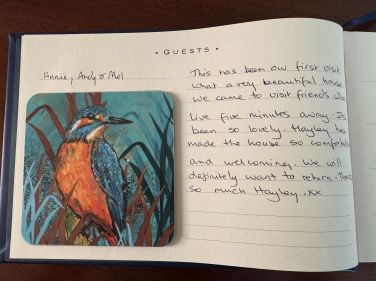 • GUESTS •
Annie, Andy & Mel
This has been our first visit,
what a very beautiful house
We came to visit friends who
live five minutes away. It's
been so lovely. Hayley has
made the house so comfortable
and welcoming. We will
definitely want to return.
so much Hayley. xx